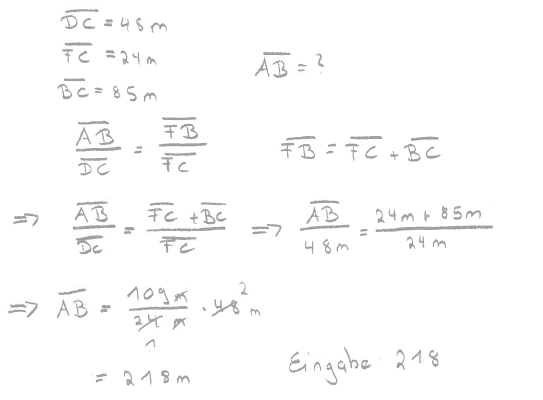 D̅C̅ = 48m
F̅C̅ = 24m
A̅B̅ = ?
B̅C̅ = 85m
A̅B̅/D̅C̅ = F̅B̅/F̅C̅
F̅B̅ = F̅C̅ + B̅C̅
=> A̅B̅/D̅c̅ = (F̅C̅ + B̅C̅)/F̅C̅ => A̅B̅/48m = (24m + 85m)/24m
=> A̅B̅ = 109m/24m · 48² m
1
= 218m
Eingabe 218